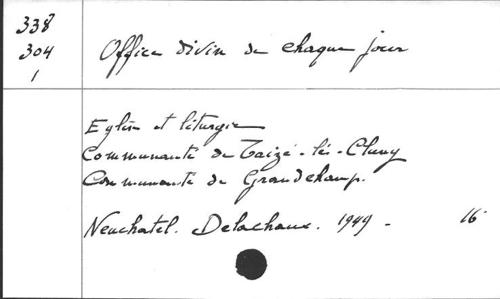 338
304
1
Office divin de chaque jour
Eglise et liturgie
Communauté de Taizé-lès-Cluny
Communauté de Grandchamp.
Neuchatel. Delachaux. 1949 - 16